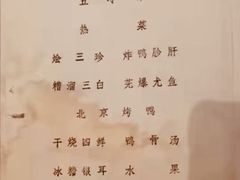 热 菜
烩三珍 炸鸭胗肝
糟溜三白 芫爆尤鱼
北京烤鸭
干烧四鲜 鸭骨汤
冰糖银耳 水果